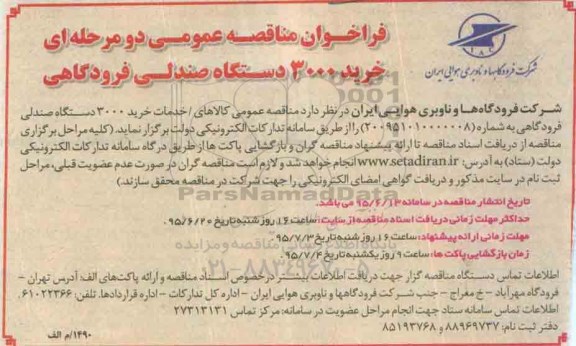 فراخوان مناقصه عمومی دو مرحله ای
خرید ۳۰۰۰ دستگاه صندلی فرودگاهی
شرکت فرودگاهها و ناوبری هوایی ایران
شرکت فرودگاه‌ها و ناوبری هوایی ایران در نظر دارد مناقصه عمومی کالاهای/خدمات خرید ۳۰۰۰ دستگاه صندلی
فرودگاهی به شماره (۲۰۰۹۵۱۰۱۰۰۰۰۰۰۸) را از طریق سامانه تدارکات الکترونیکی دولت برگزار نماید. (کلیه مراحل برگزاری
مناقصه از دریافت اسناد مناقصه تا ارائه پیشنهاد مناقصه گران و بازگشایی پاکت ها از طریق درگاه سامانه تدارکات الکترونیکی
دولت (ستاد) به آدرس: www.setadiran.ir انجام خواهد شد و لازم است مناقصه گران در صورت عدم عضویت قبلی، مراحل
ثبت نام در سایت مذکور و دریافت گواهی امضای الکترونیکی را جهت شرکت در مناقصه محقق سازند.)
تاریخ انتشار مناقصه در سامانه ۹۵/۶/۱۳ می باشد.
حداکثر مهلت زمانی دریافت اسناد مناقصه از سایت: ساعت ۱۶ روز شنبه تاریخ ۹۵/۶/۲۰.
مهلت زمانی ارائه پیشنهاد: ساعت ۱۶ روز شنبه تاریخ ۹۵/۷/۳
زمان بازگشایی پاکت ها: ساعت ۹ روز یکشنبه تاریخ ۹۵/۷/۴
اطلاعات تماس دستگاه مناقصه گزار جهت دریافت اطلاعات بیشتر درخصوص اسناد مناقصه و ارائه پاکت‌های الف: آدرس تهران -
فرودگاه مهرآباد - خ معراج - جنب شرکت فرودگاهها و ناوبری هوایی ایران - اداره کل تدارکات - اداره قراردادها. تلفن: ۶۱۰۲۲۳۶۶.
اطلاعات تماس سامانه ستاد جهت انجام مراحل عضویت در سامانه: مرکز تماس ۲۷۳۱۳۱۳۱
دفتر ثبت نام: ۸۸۹۶۹۷۳۷ و ۸۵۱۹۳۷۶۸
۱۴۹۰/م الف
ParsNamadData